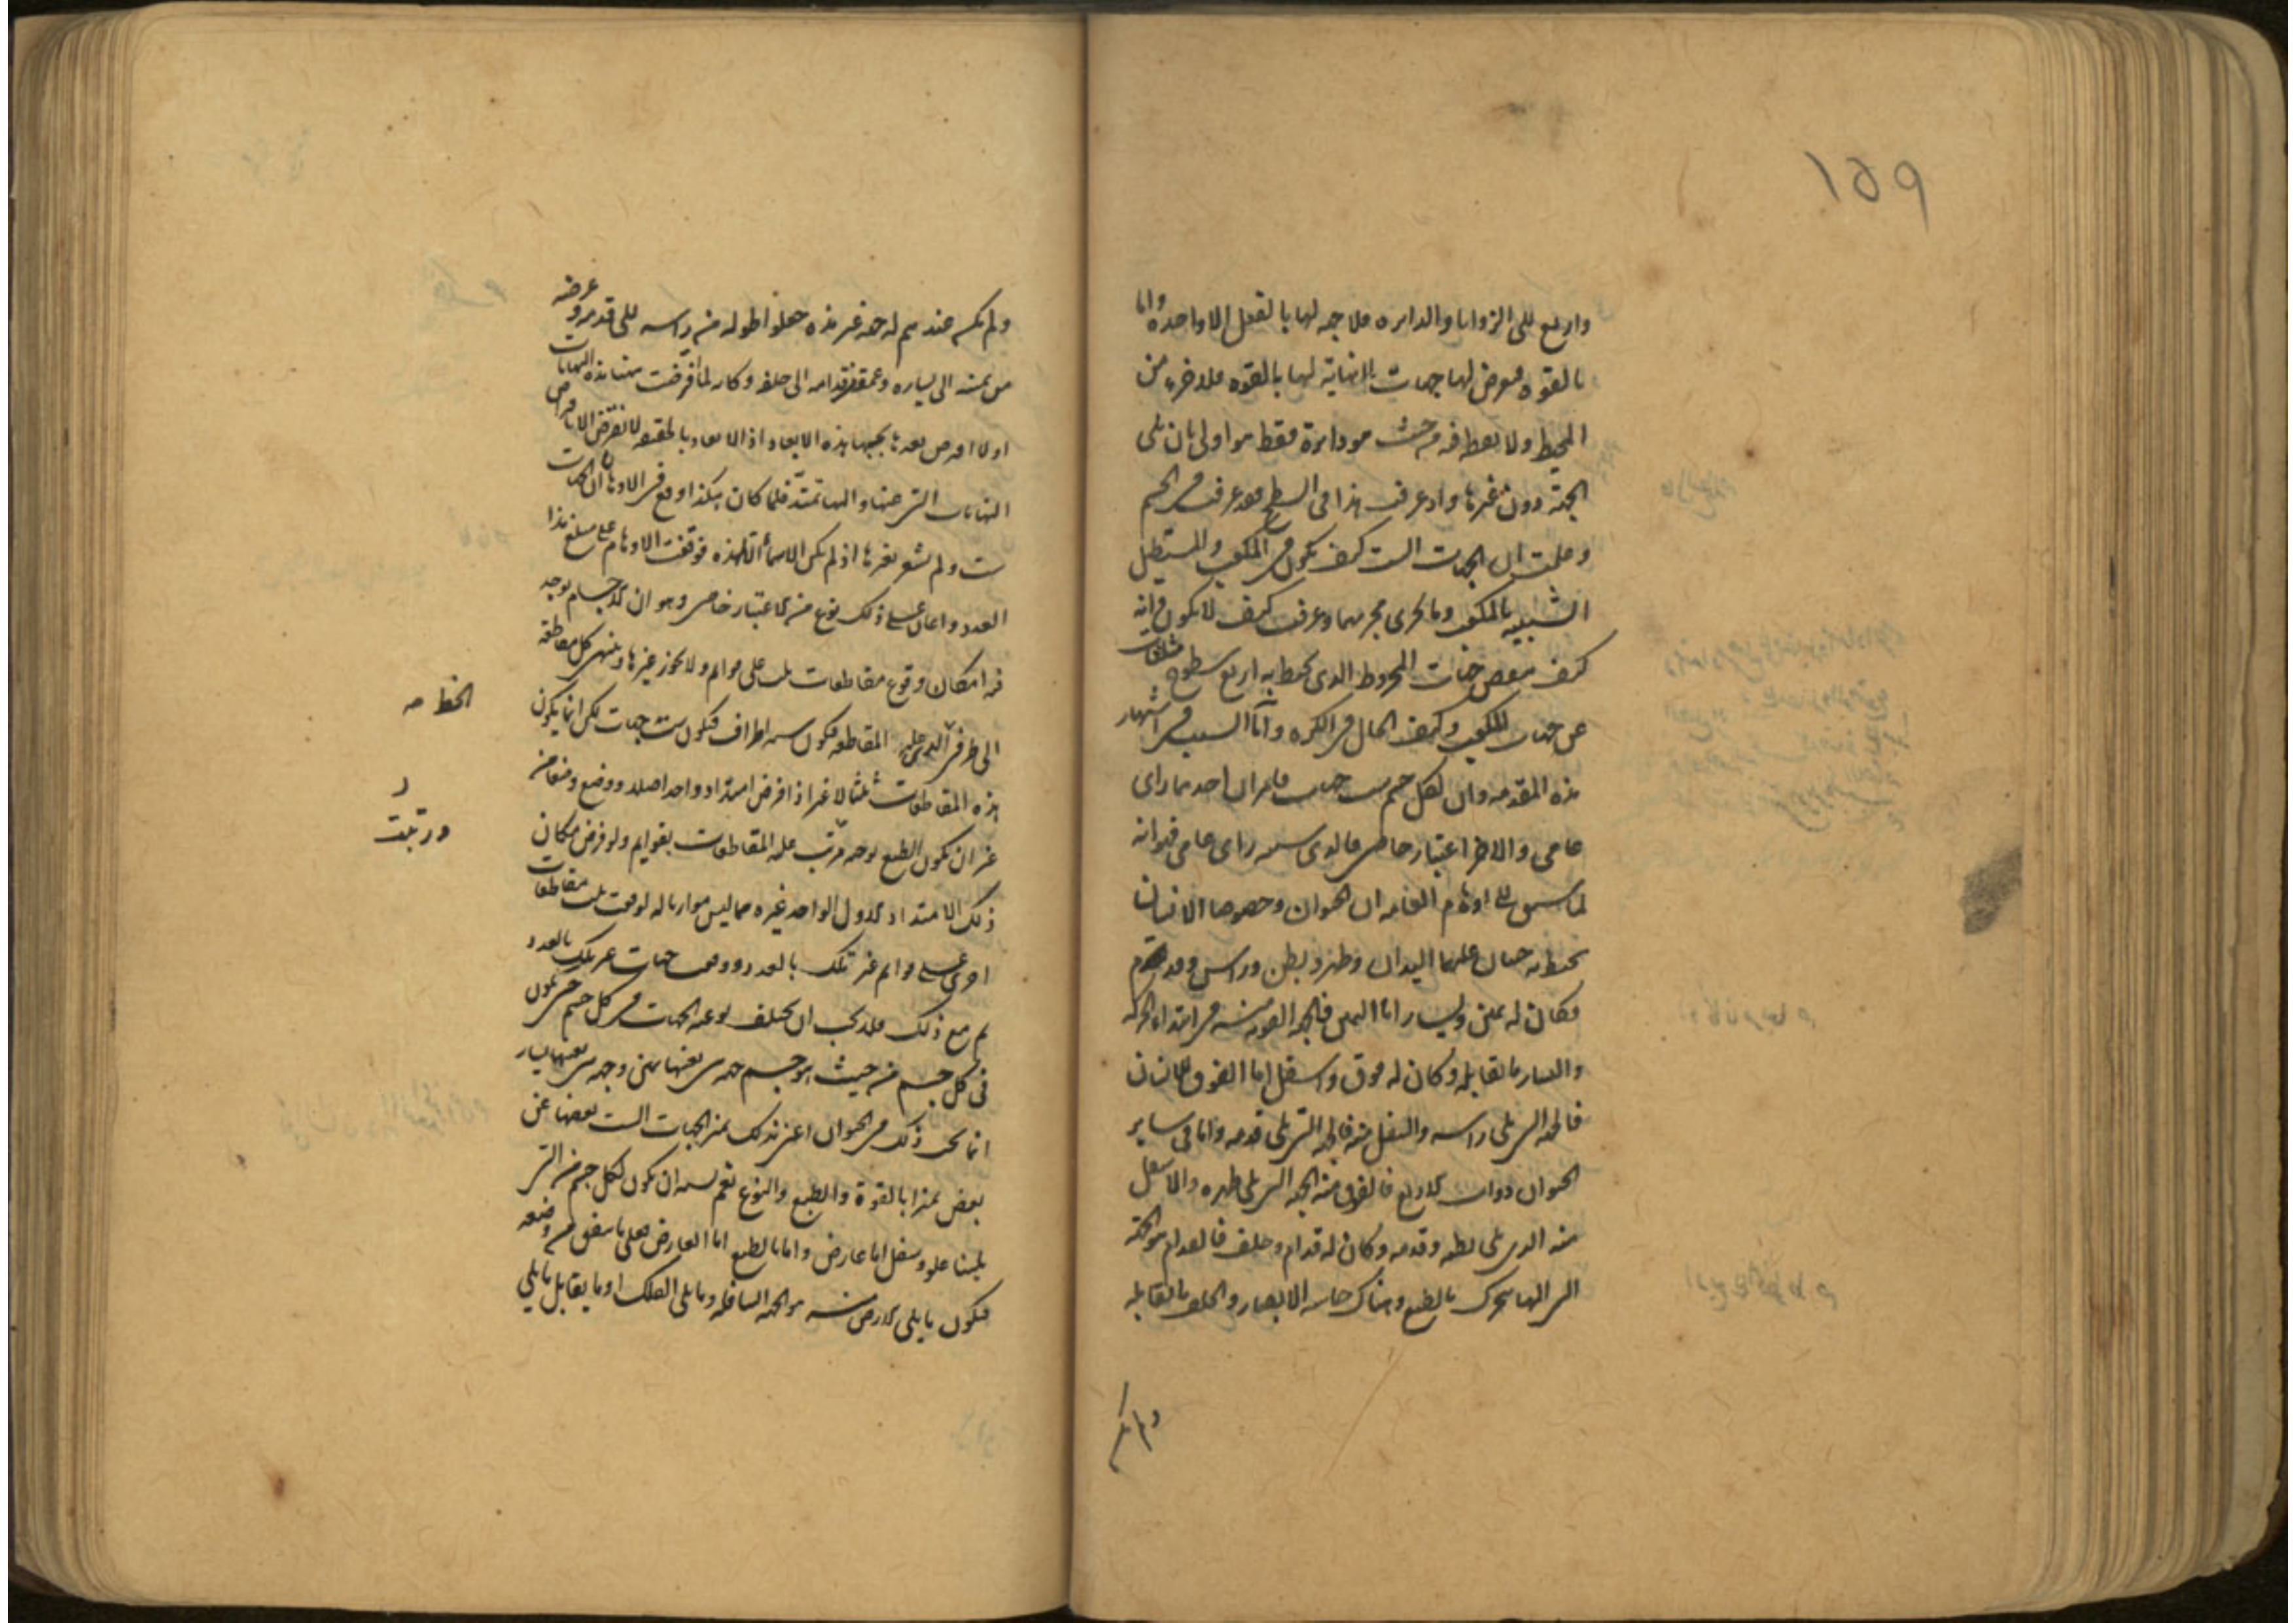 ١٥٩
واربع تلى الزوايا والدايره فلا جهه لها بالفعل الا واحدة واما
بالقوه فيعرض لها جهات بلا نهاية لها بالقوه فلا جزء من
المحيط ولا نقطة فيه من حيث هو دايرة فقط هو اولى بان تلى
الجهة دون غيرها واذ عرفت هذا فى السطح فقد عرفت فى الجسم
وعلمت ان الجهات الست كيف يكون فى المكعب والمستطيل
الشبيه بالمكعب وما يجرى مجريهما وعرفت كيف لا يكون وانه
كيف ينقص جهات المخروط الذى يحيط به اربع سطوح مثلثات
عن جهات المكعب وكيف الحال فى الكره واما السبب فى اشتهار
هذه المقدمه وان لكل جسم ست جهات فامران احدهما راى
عامى والاخر اعتبار خاصى فالذى سببه راى عامى فهو انه
لما سبق الى اوهام العامه ان الحيوان وخصوصا الانسان
يحيط به جنبان عليهما اليدان وظهر وبطن وراس وقدم
فكان له يمين ويسار اما اليمين فالجهه القويه منه فى ابتداء الحركه
واليسار ما يقابله وكان له فوق واسفل اما الفوق للانسان
فالجهه التى تلى راسه والسفل منه فالجهه التى تلى قدمه واما فى ساير
الحيوان ذوات الاربع فالفوق منه الجهه التى تلى ظهره والاسفل
منه الذى يلى بطنه وقدمه وكان له قدام وخلف فالقدام هو الجهة
التى اليها يتحرك بالطبع وهناك حاسه الابصار والخلف ما يقابله
ولم يكن
ولم يكن عندهم له جهه غير هذه جعلوا طوله من راسه الى قدمه وعرضه
من يمينه الى يساره وعمقه من قدامه الى خلفه وكان لما افترضت هذه النهايات
اولا افترض بعدها بحسبها هذه الابعاد اذ الابعاد بالحقيقه لا تفرض الا بافتراض
النهايات التى عنها واليها تمتد فلما كان هكذا وقع فى الاوهام ان الجهات
ست ولم يشعر بغيرها اذ لم يكن الاسماء الا لهذه فوقفت الاوهام على مبلغ هذا
العدد واعان على ذلك نوع من الاعتبار خاصى وهو ان الاجسام يوجد
فيها امكان وقوع مقاطعات ثلث على قوايم ولا يجوز غيرها وينتهى كل مقاطعة
الى طرفى الذى عليه المقاطعه فيكون سته اطراف فيكون ست جهات لكن انما يكون
الخط صه
هذه المقاطعات ثلثا لا غير اذا فرض امتداد واحد اصلا ووضع وضعا من
غير ان يكون الطبع يوجبه فترتب عليه المقاطعات بقوايم ولو فرض مكان
ورتبت
ذلك الامتداد الاول الواحد غيره مما ليس موازيا له لوقعت ثلث مقاطعات
اخرى على قوايم غير تلك بالعدد ووقعت جهات غير تلك بالعدد
ثم مع ذلك فلا يجب ان يختلف نوعية الجهات فى كل جسم حتى يكون
فى كل جسم من حيث هو جسم جهه هى بعينها يمين وجهه هى بعينها يسار
انما يجب ذلك فى الحيوان اعنى بذلك تميز الجهات الست بعضها عن
بعض تميزا بالقوة والطبع والنوع نعم يشبه ان يكون لكل جسم من التى
يلينا علو وسفل اما عارض واما بالطبع اما العارض فعلى ما يتفق من وضعه
فيكون ما يلى الارض منه هو الجهه السافله وما يلى الفلك او ما يقابل ما يلى